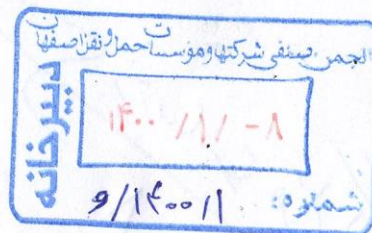 انجمن صنفی شرکتها و موسسات حمل و نقل اصفهان
دبیرخانه
۱۴۰۰ /۱/ -۸
شماره: ۱/۱۴۰۰/و